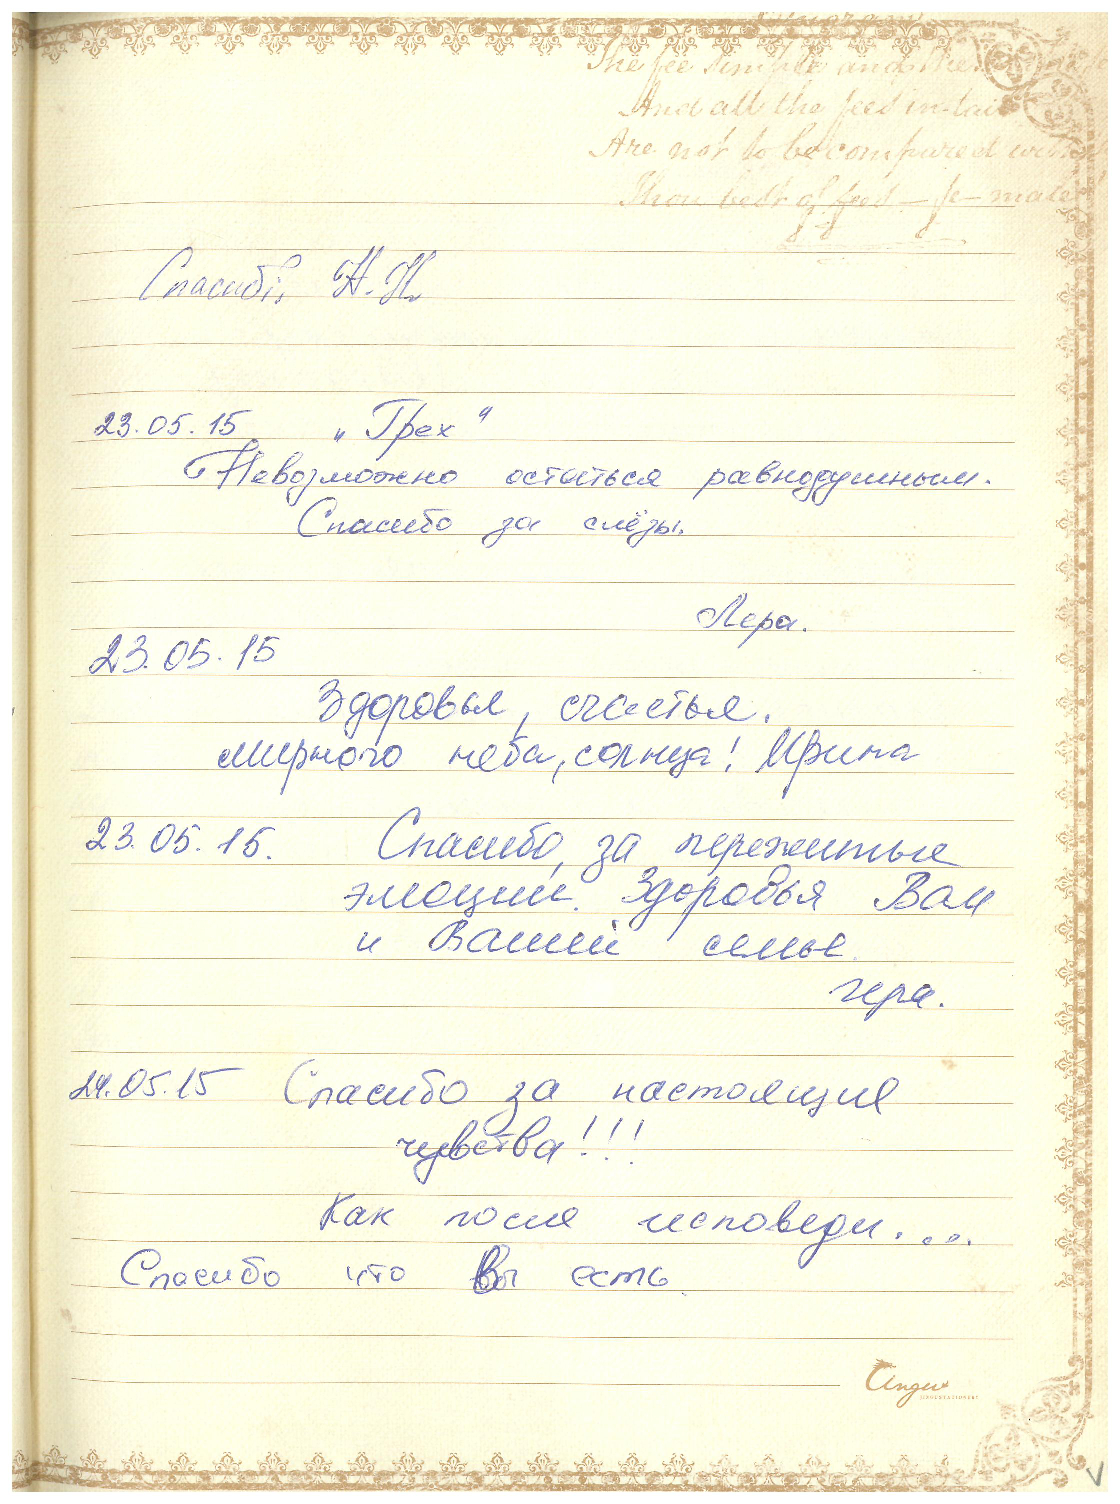 The fee simple and the
And all the fees in-tail
Are not to be compared with
Thou best of fees – fe – male
Спасибі, Н.Н.
23.05.15 „Грех“
Невозможно остаться равнодушным.
Спасибо за слёзы.
Лера.
23.05.15
Здоровья, счастья.
мирного неба, солнца! Ирина
23.05.15. Спасибо, за пережитые
эмоции. Здоровья Вам
и Вашей семье.
гера.
24.05.15 Спасибо за настоящие
чувства!!!
Как после исповеди....
Спасибо что Вы есть.